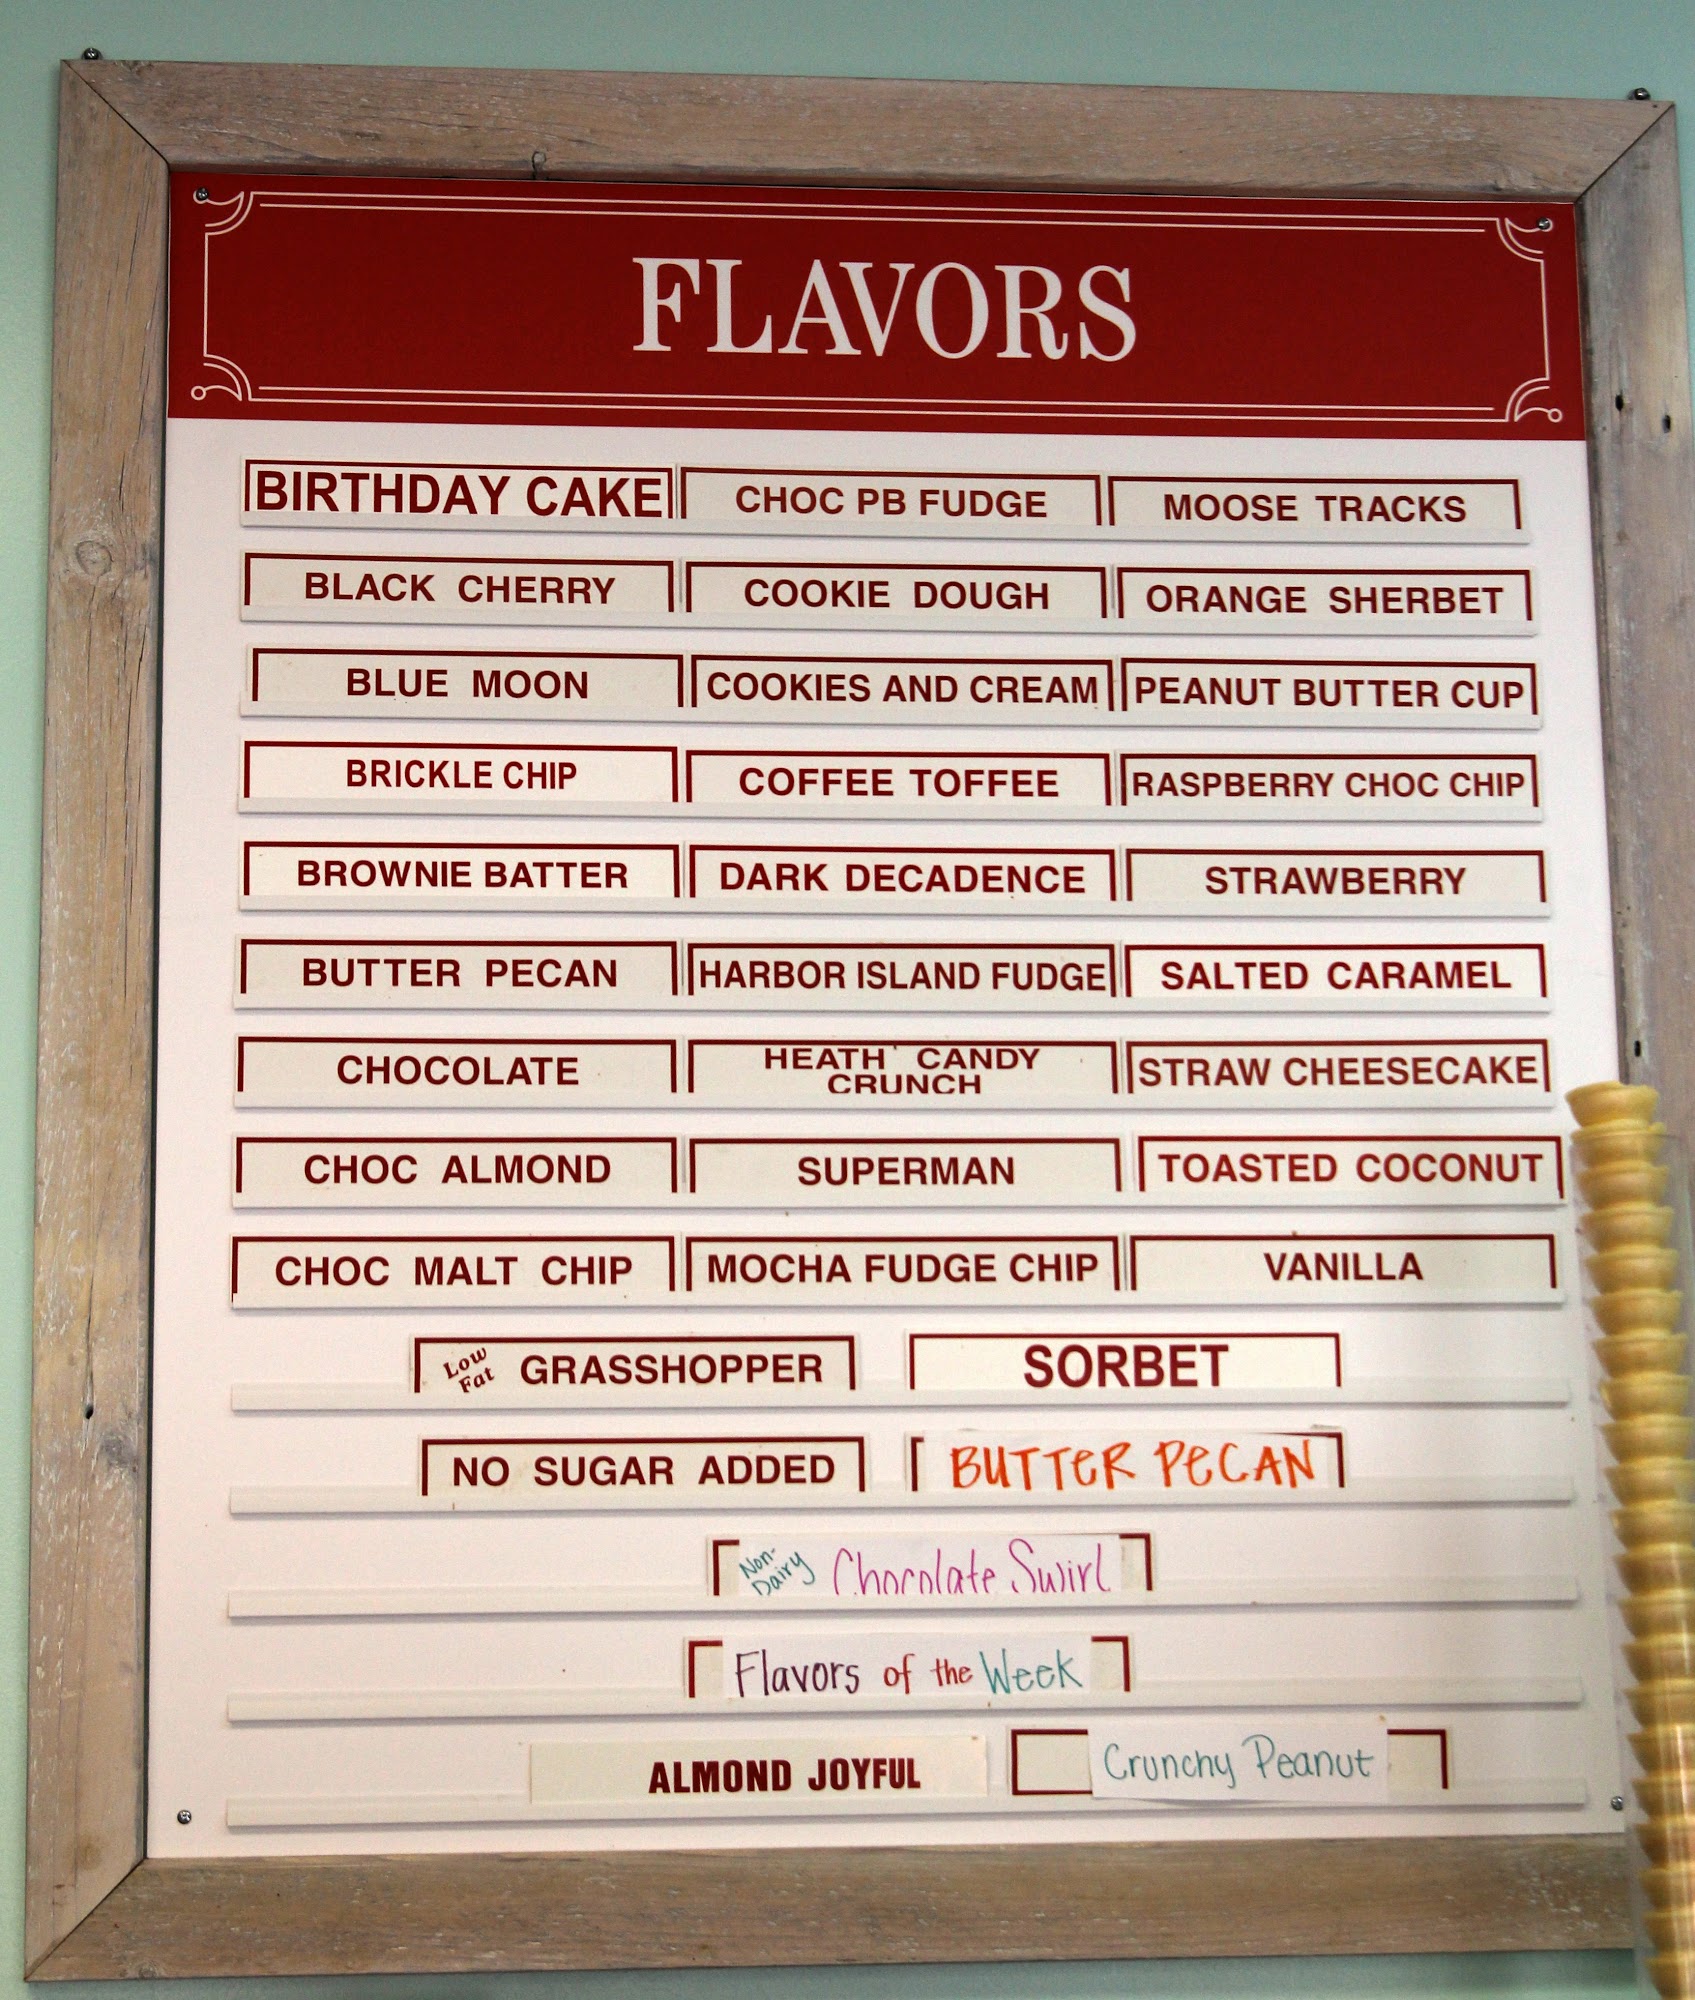 FLAVORS
BIRTHDAY CAKE CHOC PB FUDGE MOOSE TRACKS
BLACK CHERRY COOKIE DOUGH ORANGE SHERBET
BLUE MOON COOKIES AND CREAM PEANUT BUTTER CUP
BRICKLE CHIP COFFEE TOFFEE RASPBERRY CHOC CHIP
BROWNIE BATTER DARK DECADENCE STRAWBERRY
BUTTER PECAN HARBOR ISLAND FUDGE SALTED CARAMEL
CHOCOLATE HEATH CANDY CRUNCH STRAW CHEESECAKE
CHOC ALMOND SUPERMAN TOASTED COCONUT
CHOC MALT CHIP MOCHA FUDGE CHIP VANILLA
Low Fat GRASSHOPPER SORBET
NO SUGAR ADDED BUTTER PECAN
Non-Dairy Chocolate Swirl
Flavors of the Week
ALMOND JOYFUL Crunchy Peanut